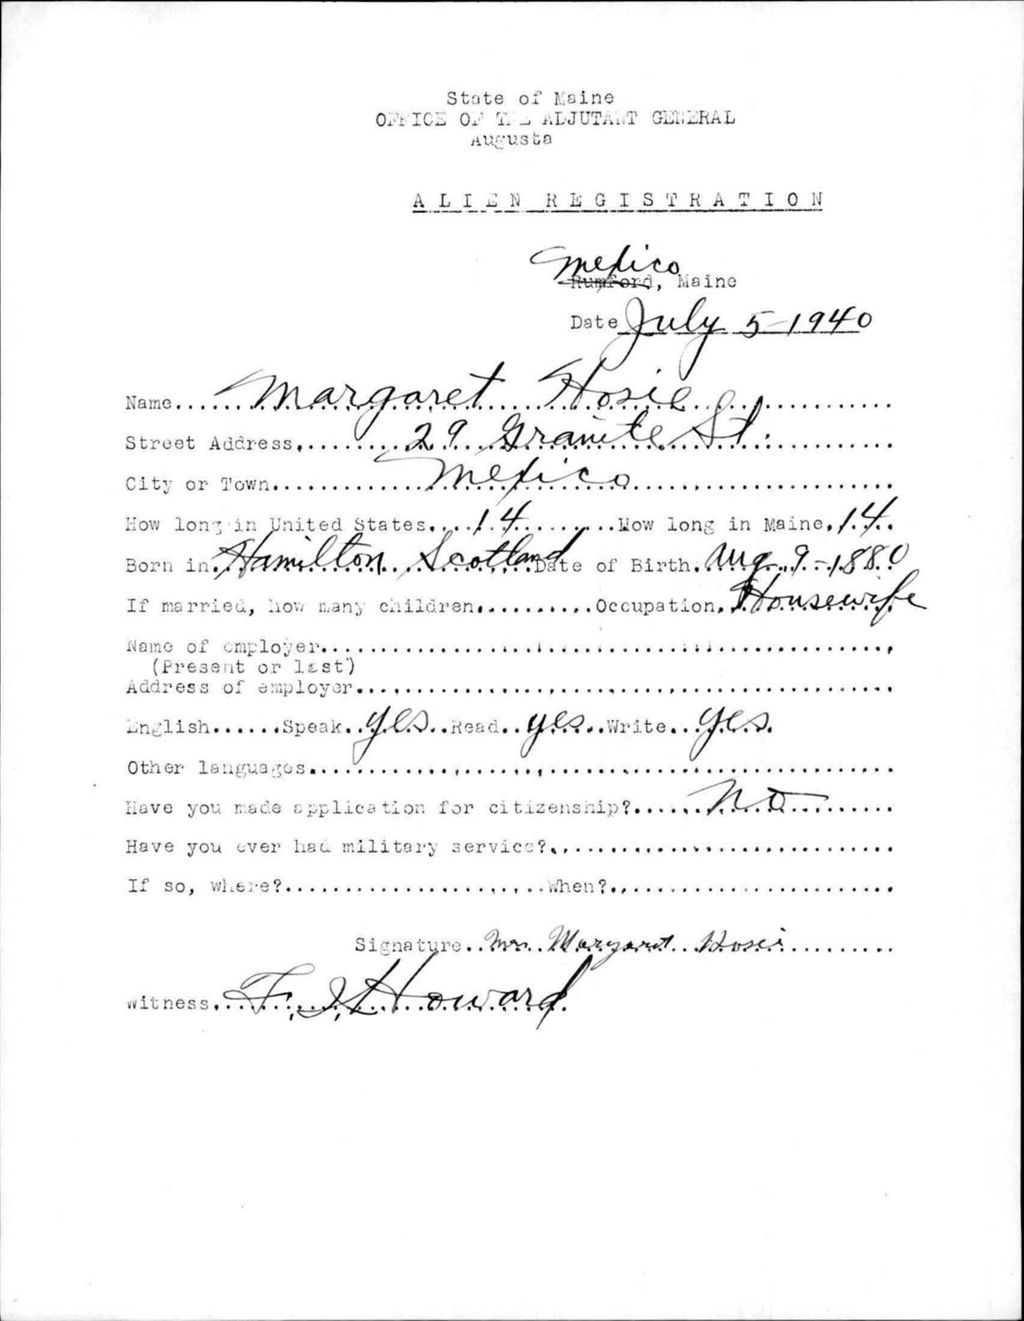 State of Maine
OFFICE OF THE ADJUTANT GENERAL
Augusta
ALIEN REGISTRATION
Mexico
Rumford, Maine
Date July 5-1940
Name Margaret Hosie
Street Address 29 Granite St.
City or Town Mexico
How long in United States 14 How long in Maine 14
Born in Hamilton Scotland Date of Birth Aug. 9-1880
If married, how many children Occupation Housewife
Name of employer
(Present or last)
Address of employer
English Speak yes Read yes Write yes
Other languages
Have you made application for citizenship? No
Have you ever had military service?
If so, where? When?
Signature Mrs. Margaret Hosie
Witness Howard